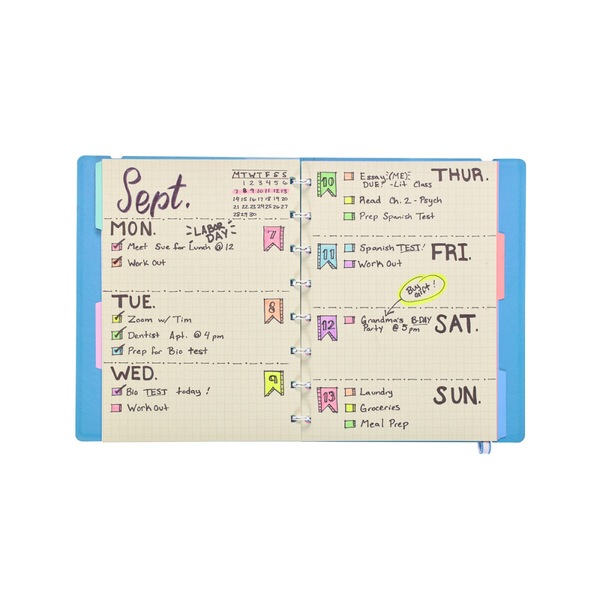 Sept.
M T W T F S S
1 2 3 4 5 6
7 8 9 10 11 12 13
14 15 16 17 18 19 20
21 22 23 24 25 26 27
28 29 30
MON.
LABOR DAY
7
Meet Sue for Lunch @ 12
Work Out
TUE.
8
Zoom w/ Tim
Dentist Apt. @ 4 pm
Prep for Bio test
WED.
9
Bio TEST today!
Work Out
THUR.
10
Essay (ME)
DUE! - Lit Class
Read Ch. 2 - Psych
Prep Spanish Test
FRI.
11
Spanish TEST!
Work Out
Buy
gift!
SAT.
12
Grandma's B-DAY
Party @ 5 pm
SUN.
13
Laundry
Groceries
Meal Prep